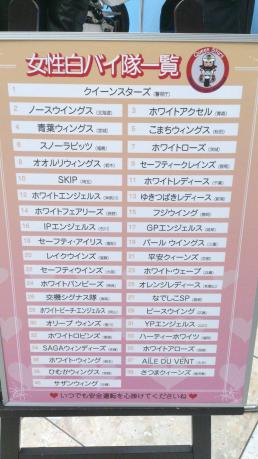 女性白バイ隊一覧
1 クイーンスターズ(警視庁)
2 ノースウイングス(北海道)
3 ホワイトアクセル(青森)
4 青葉ウィングス(宮城)
5 こまちウィングス(秋田)
6 スノーラビッツ(福島)
7 ホワイトローズ(茨城)
8 オオルリウィングス(栃木)
9 セーフティークレインズ(群馬)
10 SKIP(埼玉)
11 ホワイトレディース(千葉)
12 ホワイトエンジェルス(神奈川)
13 ゆきつばきレディース(新潟)
14 ホワイトフェアリーズ(長野)
15 フジウイング(静岡)
16 IPエンジェルス(石川)
17 GPエンジェルス(岐阜)
18 セーフティ・アイリス(愛知)
19 パール ウイングス(三重)
20 レイクウインズ(滋賀)
21 平安クイーンズ(京都)
22 セーフティウインズ(大阪)
23 ホワイトウェーブ(兵庫)
24 ホワイトバンビーズ(奈良)
25 オレンジレディース(和歌山)
26 交機シグナス隊(鳥取)
27 なでしこSP(島根)
28 ホワイトピーチ・エンジェルス(岡山)
29 ピースウイング(広島)
30 オリーブ ウィンズ(香川)
31 YPエンジェルス(山口)
32 ホワイトロビンズ(愛媛)
33 ハーティーホワイツ(福岡)
34 SAGAウィンディーズ(佐賀)
35 ホワイトアローズ(長崎)
36 ホワイト・ウィング(熊本)
37 AILE DU VENT(大分)
38 ひむかウィングス(宮崎)
39 さつまクィーンズ(鹿児島)
40 サザンウィング(沖縄)
♥いつでも安全運転を心掛けてくださいね♥